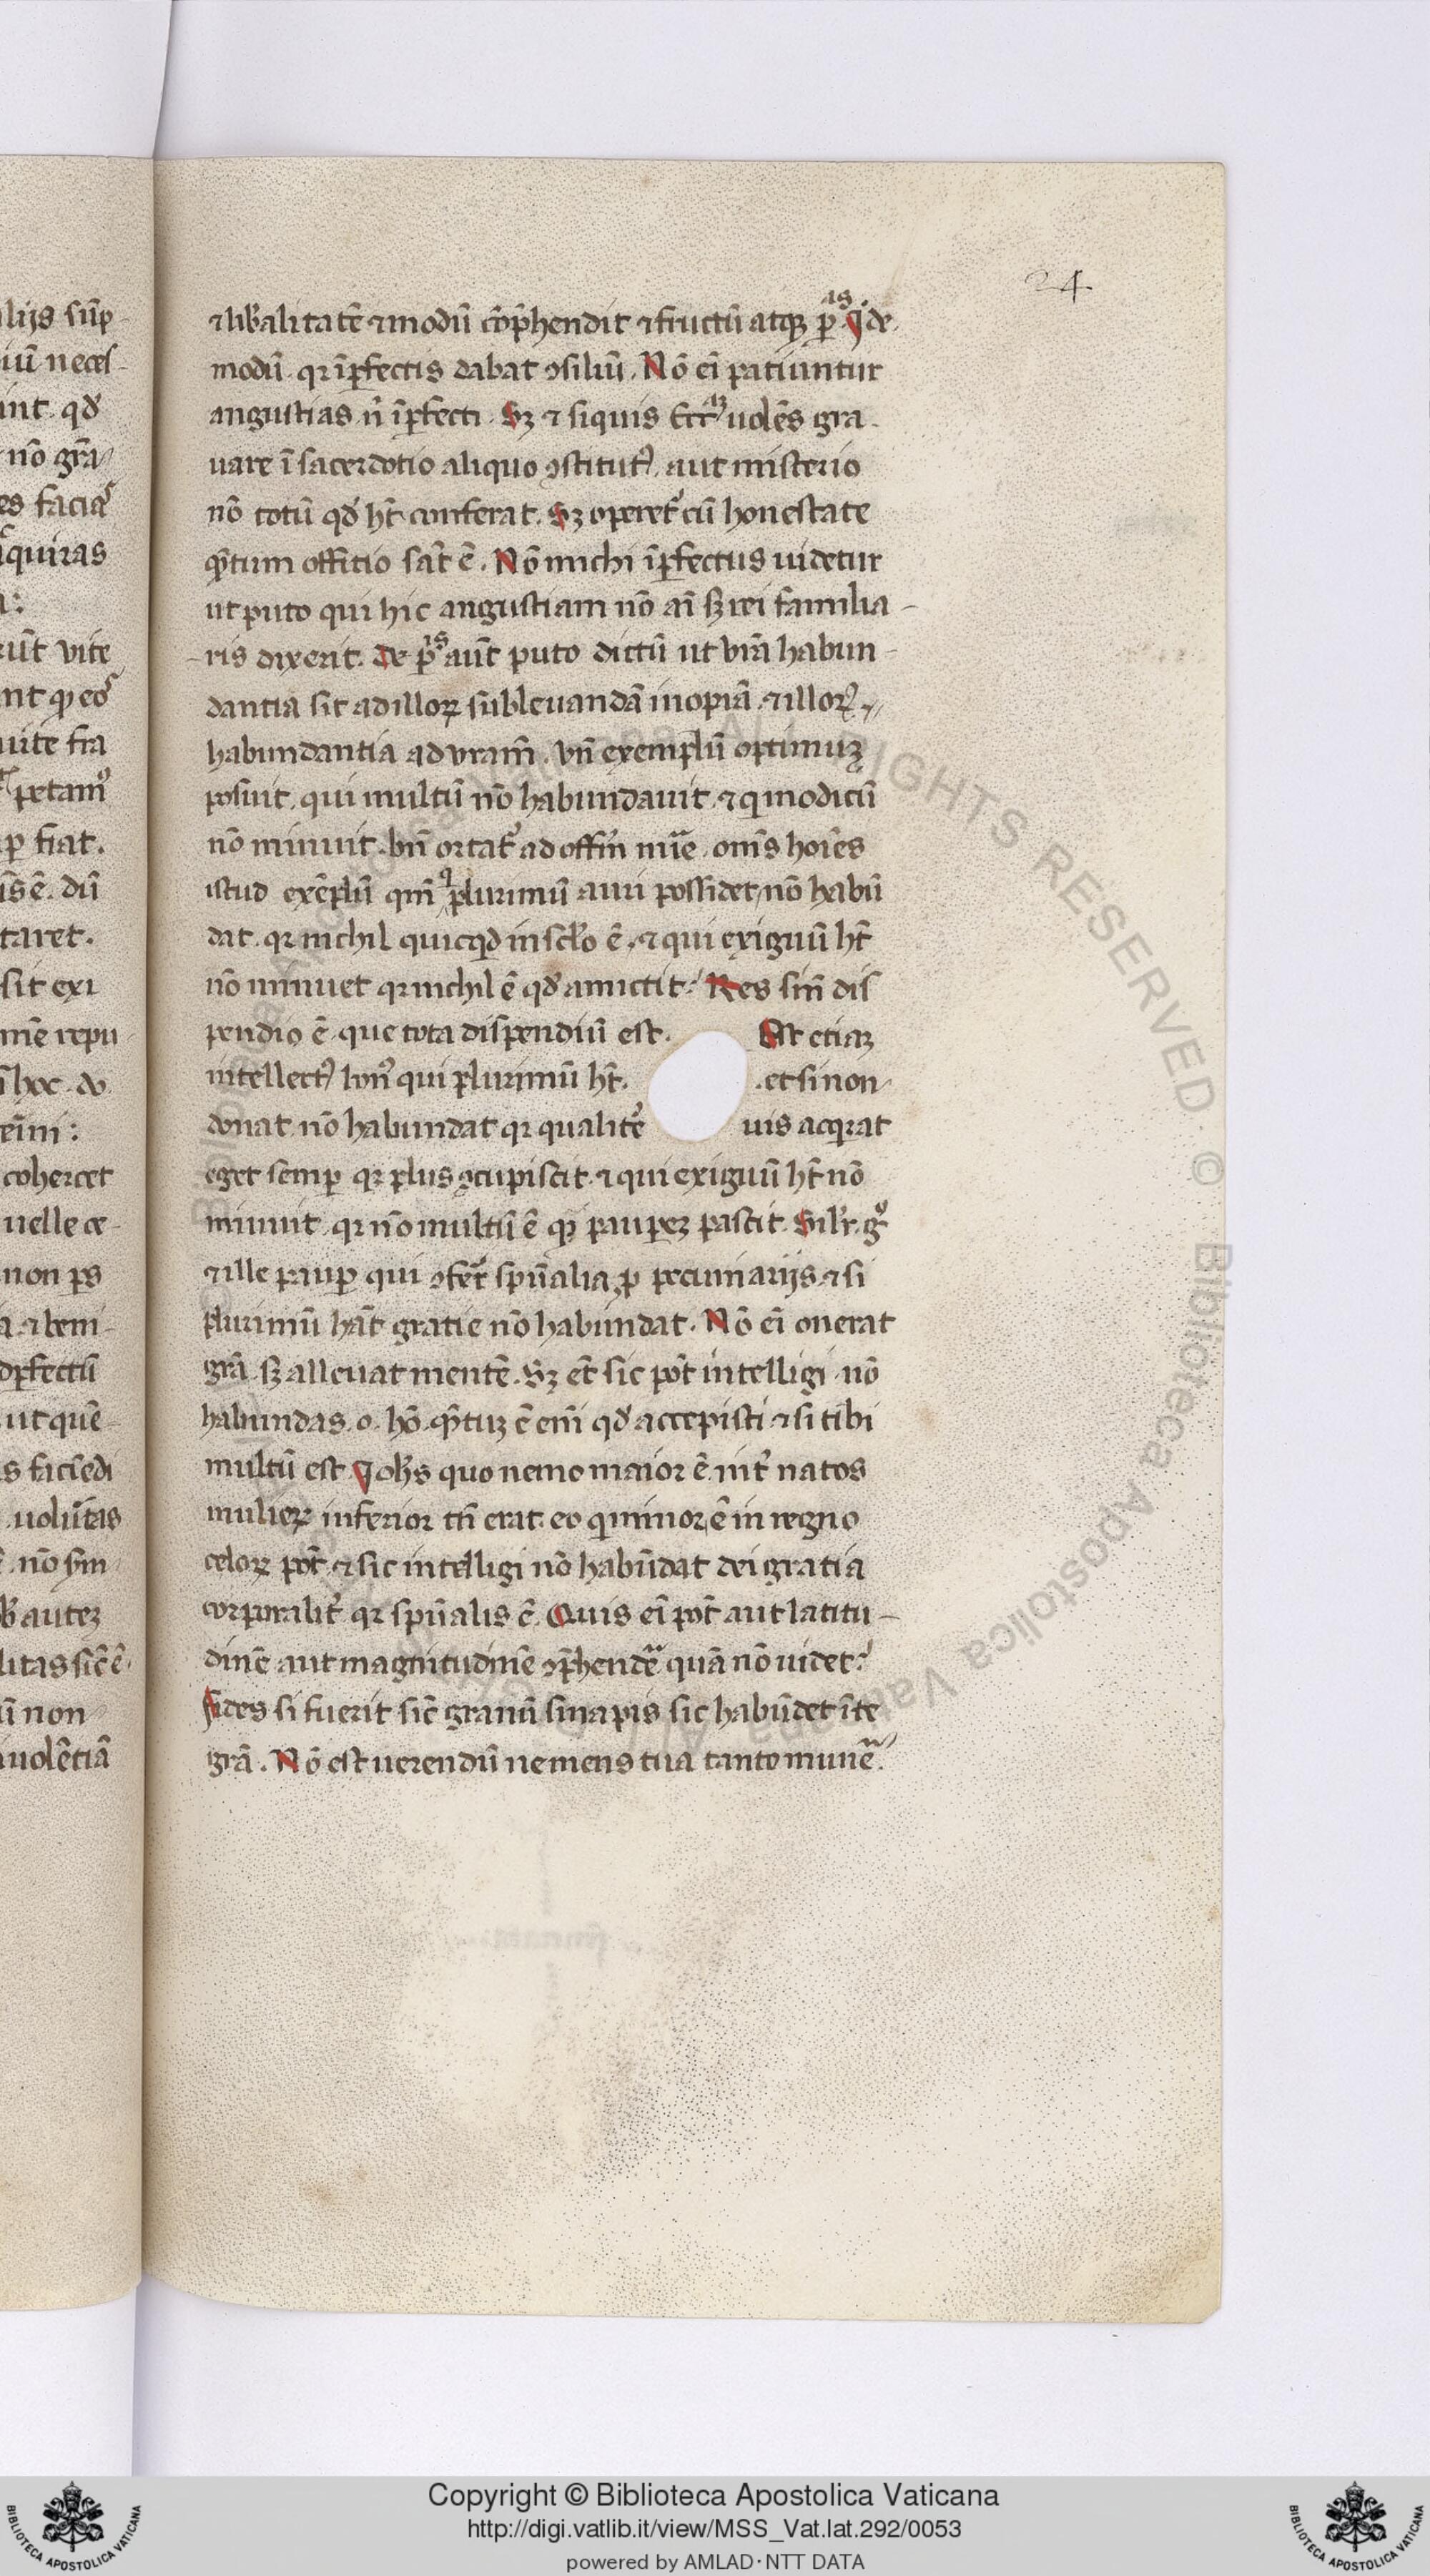 24
⁊ libalitatē ⁊ modū cōp̄hendit ⁊ fructū atqꝫ p̄as. Iō de
modū qꝛ īꝑfectis dabat ꝯsiliū. Nō eī patiuntur
angustias n̄ īꝑfecti. Sꝫ ⁊ siquis uolēs gra
uare ī sacerdotio aliquo ꝯstitutꝰ, aut misterio
nō totū qd̓ hт̄ conferat. Sꝫ operet᷑ cū honestate
q̄tum offitio sat̄ ē. Nō michi īꝑfectus uidetur
ut puto qui hic angustiam nō aī sꝫ rei familia-
ris dixerit. De p̄is aūt puto dictū ut vr̄a habun-
dantia sit ad illoꝝ subleuandā inopiā ⁊ illoꝝ
habundantia ad vram̄. Vn̄ exemplū optimuꝫ
posuit, qui multū nō habundauit ⁊ q̇ modicū
nō minuit. bn̄ ortat᷑ ad offm̄ mīe om̄s hoīes
istud exēplū qm̄ q̇ plurimū auri possidet nō habū
dat. qꝛ nichil quicq̇d in sclo ē, ⁊ qui exiguū ht̄
nō minuet qꝛ nichil ē qd̓ amictit. Res sin̄ dis
pendio ē que tota dispendiū est. Est etiaꝫ
intellectꝰ bonꝰ qui plurimū ht̄. et si non
donat nō habundat qꝛ qualit᷑ uis acq̇rat
eget semꝑ qꝛ plus ꝯcupiscit ⁊ qui exiguū ht̄ nō
minuit qꝛ nō multū ē qd̓ pauꝑeꝫ pascit. Silr̄ gͦ
⁊ ille pauꝑ qui ꝯfert spūalia ꝓ pecuniarijs ⁊ si
plurimū hāt gratie nō habundat. Nō eī onerat
grā sꝫ alleuat mentē. Sꝫ et̄ sic pōt intelligi nō
habundas. o. hō. q̄tuꝫ ē enī qd̓ accepisti ⁊ si tibi
multū est. Ioh̄s quo nemo maior ē int᷑ natos
mulieꝝ inferior tn̄ erat eo qui minor ē in regno
celoꝝ pōt ⁊ sic intelligi nō habūdat dei gratia
corporalit᷑ qꝛ spūalis ē. Quis eī pōt aut latitu-
dinē aut magnitudinē ꝯp̄hendē quā nō uidet.
Fides si fuerit sic̄ granū sinapis sic habūdet ī te
grā. Nō est uerendū ne mens tua tanto munē.
Copyright © Biblioteca Apostolica Vaticana
http://digi.vatlib.it/view/MSS_Vat.lat.292/0053
powered by AMLAD·NTT DATA